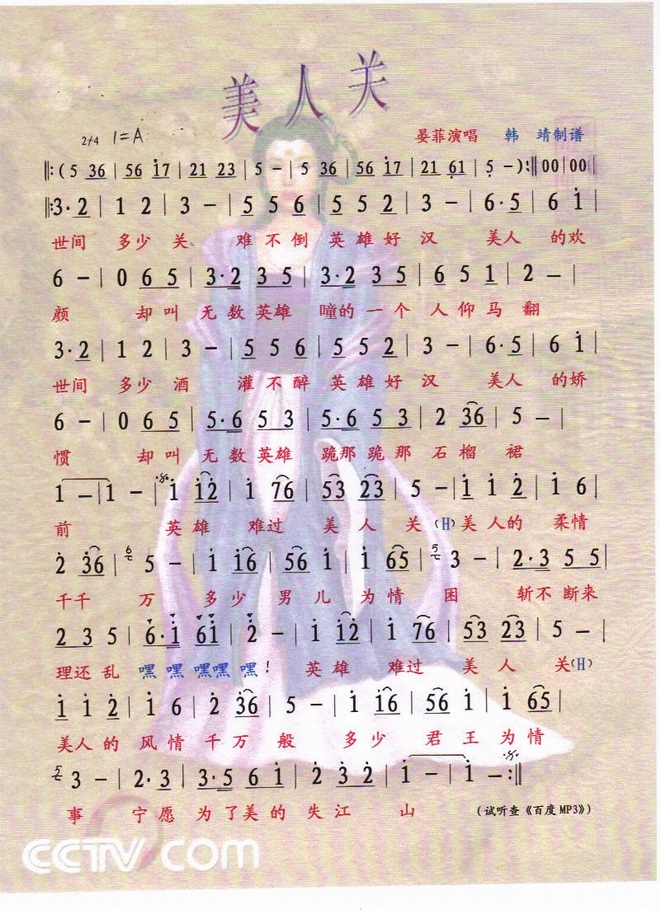 美人关
2/4 1=A 晏菲演唱 韩 靖制谱
‖:( 5 36 | 56 i7 | 21 23 | 5 – | 5 36 | 56 i7 | 21 61 | 5 – ):‖ 00 | 00 |
‖:3·2 | 1 2 | 3 – | 5 5 6 | 5 5 2 | 3 – | 6·5 | 6 i |
世间 多少 关、 难 不 倒 英 雄 好 汉 美人 的欢
6 – | 0 6 5 | 3·2 3 5 | 3·2 3 5 | 6 5 1 | 2 – |
颜 却叫 无 数 英雄 瞳的 一 个 人 仰 马 翻
3·2 | 1 2 | 3 – | 5 5 6 | 5 5 2 | 3 – | 6·5 | 6 i |
世间 多少 酒 灌 不 醉 英 雄 好 汉 美人 的娇
6 – | 0 6 5 | 5·6 5 3 | 5·6 5 3 | 2 36 | 5 – |
惯 却叫 无数 英雄 跪那 跪那 石 榴 裙
1 – | 1 – | i i2 | i 76 | 53 23 | 5 – | i i 2 | i 6 |
前 英雄 难过 美 人 关 (H) 美 人的 柔情
2 36 | 5 – | i i6 | 56 i | i 65 | 3 – | 2·3 5 5 |
千千 万 多少 男 儿 为 情 困 斩不 断来
2 3 5 | 6·i 6i | 2 – | i i2 | i 76 | 53 23 | 5 – |
理还 乱 嘿 嘿 嘿嘿 嘿! 英雄 难过 美 人 关(H)
i i 2 | i 6 | 2 36 | 5 – | i i6 | 56 i | i 65 |
美人 的 风 情 千 万 般 多少 君 王 为 情
3 – | 2·3 | 3·5 6 i | 2 3 2 | i – | i – :‖
事 宁愿 为 了 美 的 失 江 山 (试听查《百度MP3》)
CCTV com